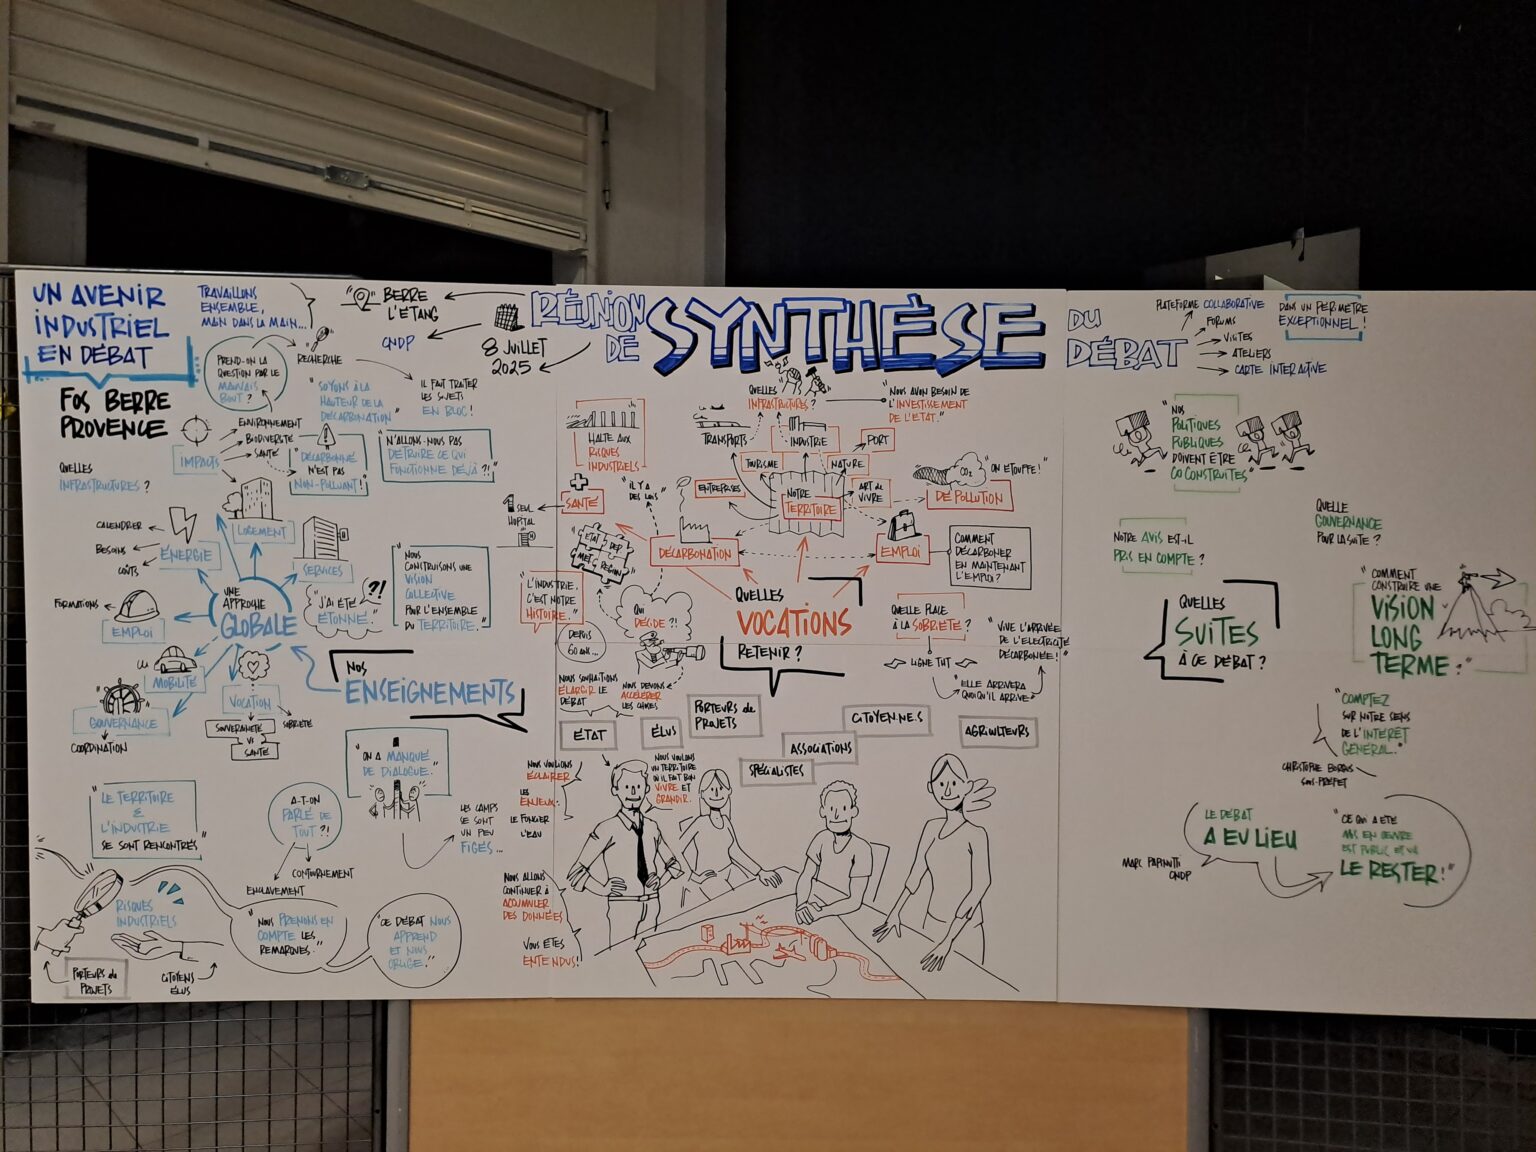 UN AVENIR
INDUSTRIEL
EN DÉBAT
FOS BERRE
PROVENCE
TRAVAILLONS
ENSEMBLE,
MAIN DANS LA MAIN...
BERRE
L'ÉTANG
CNDP
8 JUILLET
2025
RÉUNION
DE
SYNTHÈSE
DU
DÉBAT
PLATEFORME COLLABORATIVE
FORUMS
VISITES
ATELIERS
CARTE INTERACTIVE
DANS UN PÉRIMÈTRE
EXCEPTIONNEL !
PREND-ON LA
QUESTION PAR LE
MAUVAIS
BOUT ?
RECHERCHE
"SOYONS À LA
HAUTEUR DE LA
DÉCARBONATION"
IL FAUT TRAITER
LES SUJETS
EN BLOC !
IMPACTS
ENVIRONNEMENT
BIODIVERSITÉ
SANTÉ
"DÉCARBONNÉ
N'EST PAS
NON-POLLUANT !"
N'ALLONS-NOUS PAS
DÉTRUIRE CE QUI
FONCTIONNE DÉJÀ ?!
QUELLES
INFRASTRUCTURES ?
LOGEMENT
CALENDRIER
BESOINS
COÛTS
ÉNERGIE
SERVICES
UNE
APPROCHE
GLOBALE
"J'AI ÉTÉ
ÉTONNÉ."
?!
"NOUS
CONSTRUISONS UNE
VISION
COLLECTIVE
POUR L'ENSEMBLE
DU TERRITOIRE."
FORMATIONS
EMPLOI
MOBILITÉ
GOUVERNANCE
COORDINATION
VOCATION
SOUVERAINETÉ
VS
SANTÉ
SOBRIÉTÉ
NOS
ENSEIGNEMENTS
"ON A MANQUÉ
DE DIALOGUE."
LES CAMPS
SE SONT
UN PEU
FIGÉS...
"LE TERRITOIRE
&
L'INDUSTRIE
SE SONT RENCONTRÉS"
A-T-ON
PARLÉ DE
TOUT ?!
CONTOURNEMENT
ENCLAVEMENT
RISQUES
INDUSTRIELS
PORTEURS de
PROJETS
CITOYENS
ÉLUS
"NOUS PRENONS EN
COMPTE LES
REMARQUES."
"CE DÉBAT NOUS
APPREND
ET NOUS
OBLIGE."
HALTE AUX
RISQUES
INDUSTRIELS
QUELLES
INFRASTRUCTURES ?
"NOUS AVONS BESOIN DE
L'INVESTISSEMENT
DE L'ÉTAT."
TRANSPORTS
INDUSTRIE
PORT
TOURISME
NATURE
ENTREPRISES
NOTRE
TERRITOIRE
ART de
VIVRE
CO₂
"ON ÉTOUFFE !"
DÉPOLLUTION
SANTÉ
1 SEUL
HOPITAL
"IL Y A
DES LOIS"
ETAT
DEP
MET
REGION
DÉCARBONATION
EMPLOI
COMMENT
DÉCARBONER
EN MAINTENANT
L'EMPLOI ?
"L'INDUSTRIE,
C'EST NOTRE
HISTOIRE."
DEPUIS
60 ANS...
QUI
DÉCIDE ?!
QUELLES
VOCATIONS
RETENIR ?
QUELLE PLACE
À LA SOBRIÉTÉ ?
"VIVE L'ARRIVÉE
DE L'ÉLECTRICITÉ
DÉCARBONÉE !"
LIGNE THT
"ELLE ARRIVERA
QUOI QU'IL ARRIVE"
NOUS SOUHAITIONS
ÉLARGIR LE
DÉBAT
NOUS DEVONS
ACCÉLÉRER
LES CHOSES
ÉTAT
ÉLUS
PORTEURS de
PROJETS
ASSOCIATIONS
SPÉCIALISTES
CITOYEN.NE.S
AGRICULTEURS
NOUS VOULIONS
ÉCLAIRER
LES
ENJEUX
LE FONCIER
L'EAU
NOUS VOULONS
UN TERRITOIRE
OÙ IL FAIT BON
VIVRE ET
GRANDIR.
NOUS ALLONS
CONTINUER À
ACCUMULER
DES DONNÉES
VOUS ÊTES
ENTENDUS !
"NOS
POLITIQUES
PUBLIQUES
DOIVENT ÊTRE
CO CONSTRUITES"
NOTRE AVIS EST-IL
PRIS EN COMPTE ?
QUELLE
GOUVERNANCE
POUR LA SUITE ?
QUELLES
SUITES
À CE DÉBAT ?
"COMMENT
CONSTRUIRE UNE
VISION
LONG
TERME ?"
"COMPTEZ
SUR NOTRE SENS
DE L'INTÉRÊT
GÉNÉRAL."
CHRISTOPHE
SOUS-PRÉFET
LE DÉBAT
A EU LIEU
MARC PAPINUTTI
CNDP
"CE QUI A ÉTÉ
MIS EN OEUVRE
EST PUBLIC ET VA
LE RESTER !"